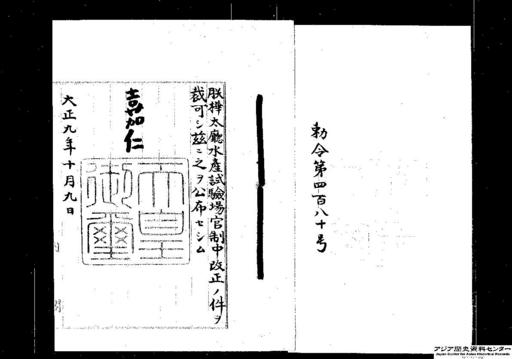 勅令第四百八十号
朕樺太廳水産試驗場官制中改正ノ件ヲ
裁可シ茲ニ之ヲ公布セシム
嘉仁
天皇
御璽
大正九年十月九日
内閣
アジア歴史資料センター
Japan Center for Asian Historical Records